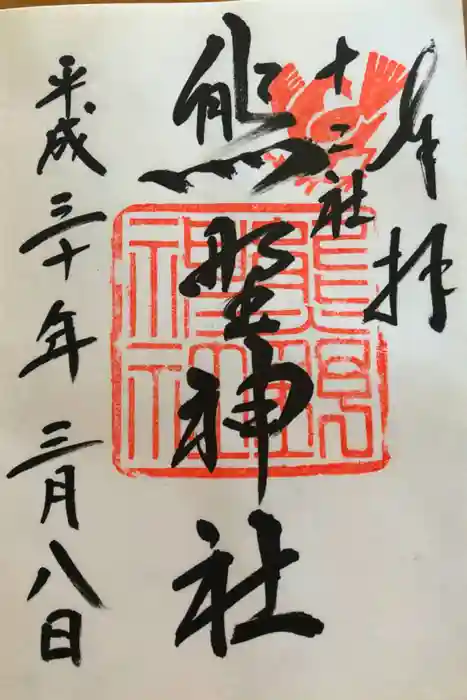 奉拝
十二社
熊野神社
平成三十年三月八日
熊野
神社